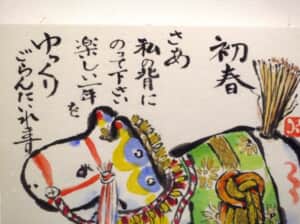 初春
さあ
私の背に
のって下さい
楽しい一年を
ゆっくり
ごらんにいれます